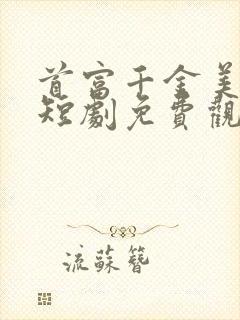 首富千金美
短劇免費觀
流蘇簪